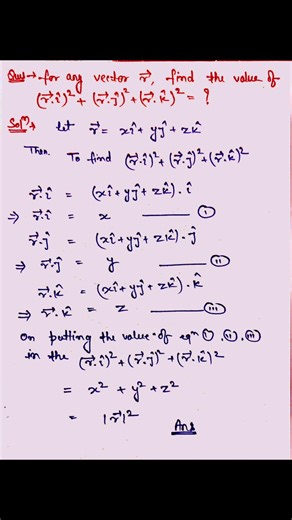 Ques → for any vector r⃗, find the value of
(r⃗.î)² + (r⃗.ĵ)² + (r⃗.k̂)² = ?
Solⁿ→ let r⃗ = xî + yĵ + zk̂
Then To find (r⃗.î)² + (r⃗.ĵ)² + (r⃗.k̂)²
r⃗.î = (xî + yĵ + zk̂).î
⇒ r⃗.î = x —— (i)
r⃗.ĵ = (xî + yĵ + zk̂).ĵ
⇒ r⃗.ĵ = y —— (ii)
r⃗.k̂ = (xî + yĵ + zk̂).k̂
⇒ r⃗.k̂ = z —— (iii)
On putting the value of eqⁿ (i), (ii), (iii)
in the (r⃗.î)² + (r⃗.ĵ)² + (r⃗.k̂)²
= x² + y² + z²
= |r⃗|²
Ans